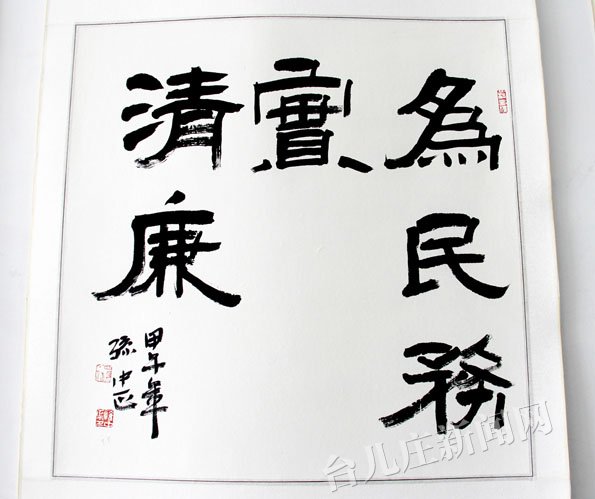 為民務
實
清廉
甲午年
孫
台儿庄新闻网